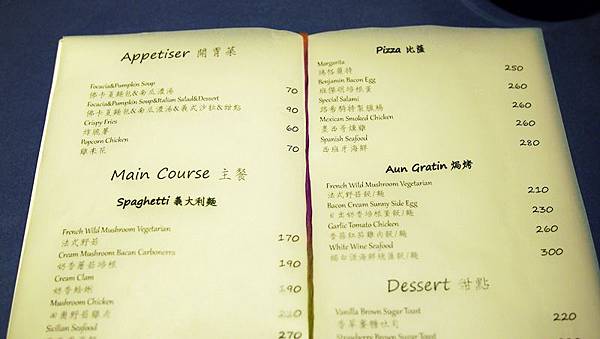 Appetiser 開胃菜
Focacia&Pumpkin Soup
佛卡夏麵包&南瓜濃湯 70
Focacia&Pumpkin Soup&Italian Salad&Dessert
佛卡夏麵包&南瓜濃湯&義式沙拉&甜點 90
Crispy Fries
炸脆薯 60
Popcorn Chicken
雞米花 70
Main Course 主餐
Spaghetti 義大利麵
French Wild Mushroom Vegetarian
法式野菇 170
Cream Mushroom Bacan Carbonerra
奶香蘑菇培根 190
Cream Clam
奶香蛤蜊 190
Mushroom Chicken
田園野菇雞肉 210
Sicilian Seafood
270
Pizza 比薩
Margarita
瑪格麗特 250
Benjamin Bacon Egg
班傑明培根蛋 260
Special Salami
路易騎特製臘腸 260
Mexican Smoked Chicken
墨西哥燻雞 260
Spanish Seafood
西班牙海鮮 280
Aun Gratin 焗烤
French Wild Mushroom Vegetarian
法式野菇飯/麵 210
Bacon Cream Sunny Side Egg
日出奶香培根蛋飯/麵 230
Garlic Tomato Chicken
香蒜紅茄雞肉飯/麵 260
White Wine Seafood
海鮮焗飯/麵 300
Dessert 甜點
Vanilla Brown Sugar Toast
香草蜜糖吐司 220
Strawberry Brown Sugar Toast